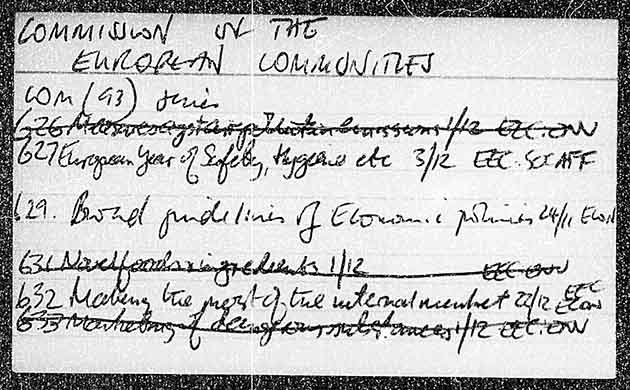 COMMISSION OF THE
EUROPEAN COMMUNITIES
COM (93) series
626 Measures against air pollution emissions 1/12 EEC.ENV
627 European Year of Safety, Hygiene etc 3/12 EEC.SOCAFF
629. Broad guidelines of Economic policies 24/11 ECON
631 Novel foods ingredients 1/12 EEC.ENV
632 Making the most of the internal market 22/12 EEC ECON
633 Marketing of dangerous substances 1/12 EEC.ENV